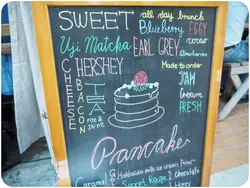 SWEET all day brunch
Blueberry EGG
Uji Matcha EARL GREY cocoa
HERSHEY Made to order
CHEESE
BACON
TEA
JAM
Cream
FRESH
Pancake
Hokkaido milk ice cream Flour
Caramel Secret Recipe chocolate
Honey